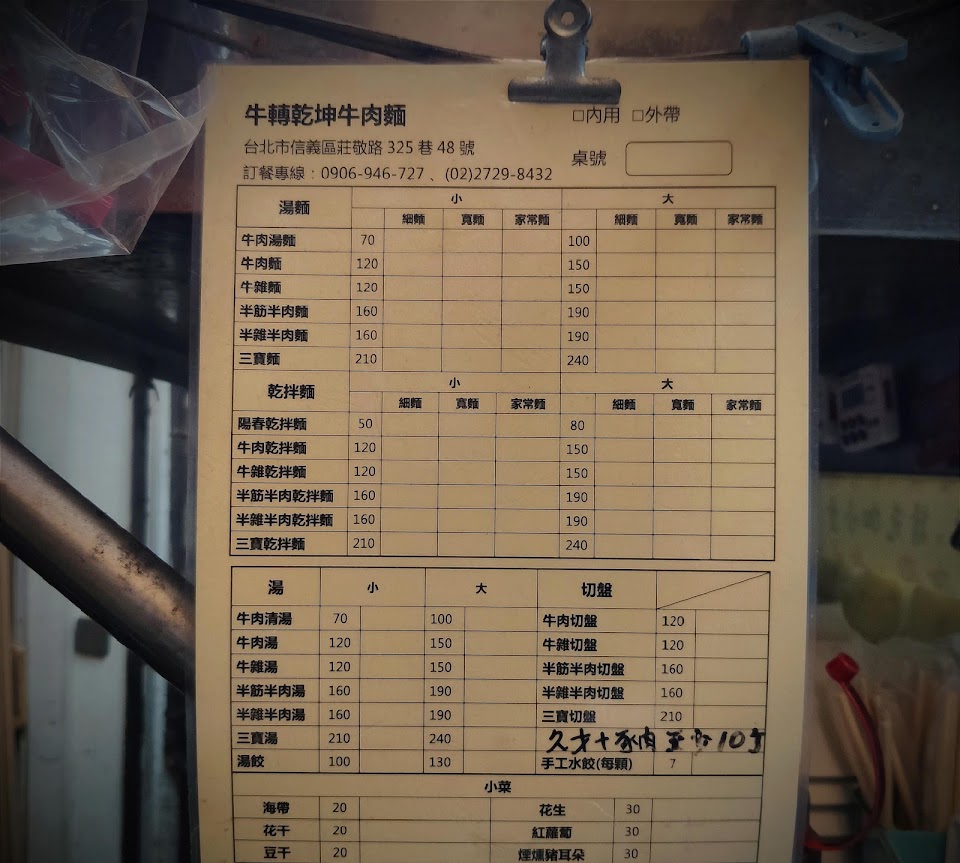 牛轉乾坤牛肉麵 □內用 □外帶
台北市信義區莊敬路 325 巷 48 號
桌號
訂餐專線：0906-946-727、(02)2729-8432
湯麵 小 大
細麵 寬麵 家常麵 細麵 寬麵 家常麵
牛肉湯麵 70 100
牛肉麵 120 150
牛雜麵 120 150
半筋半肉麵 160 190
半雜半肉麵 160 190
三寶麵 210 240
乾拌麵 小 大
細麵 寬麵 家常麵 細麵 寬麵 家常麵
陽春乾拌麵 50 80
牛肉乾拌麵 120 150
牛雜乾拌麵 120 150
半筋半肉乾拌麵 160 190
半雜半肉乾拌麵 160 190
三寶乾拌麵 210 240
湯 小 大 切盤
牛肉清湯 70 100 牛肉切盤 120
牛肉湯 120 150 牛雜切盤 120
牛雜湯 120 150 半筋半肉切盤 160
半筋半肉湯 160 190 半雜半肉切盤 160
半雜半肉湯 160 190 三寶切盤 210
三寶湯 210 240
湯餃 100 130 手工水餃(每顆) 7
小菜
海帶 20 花生 30
花干 20 紅蘿蔔 30
豆干 20 煙燻豬耳朵 30